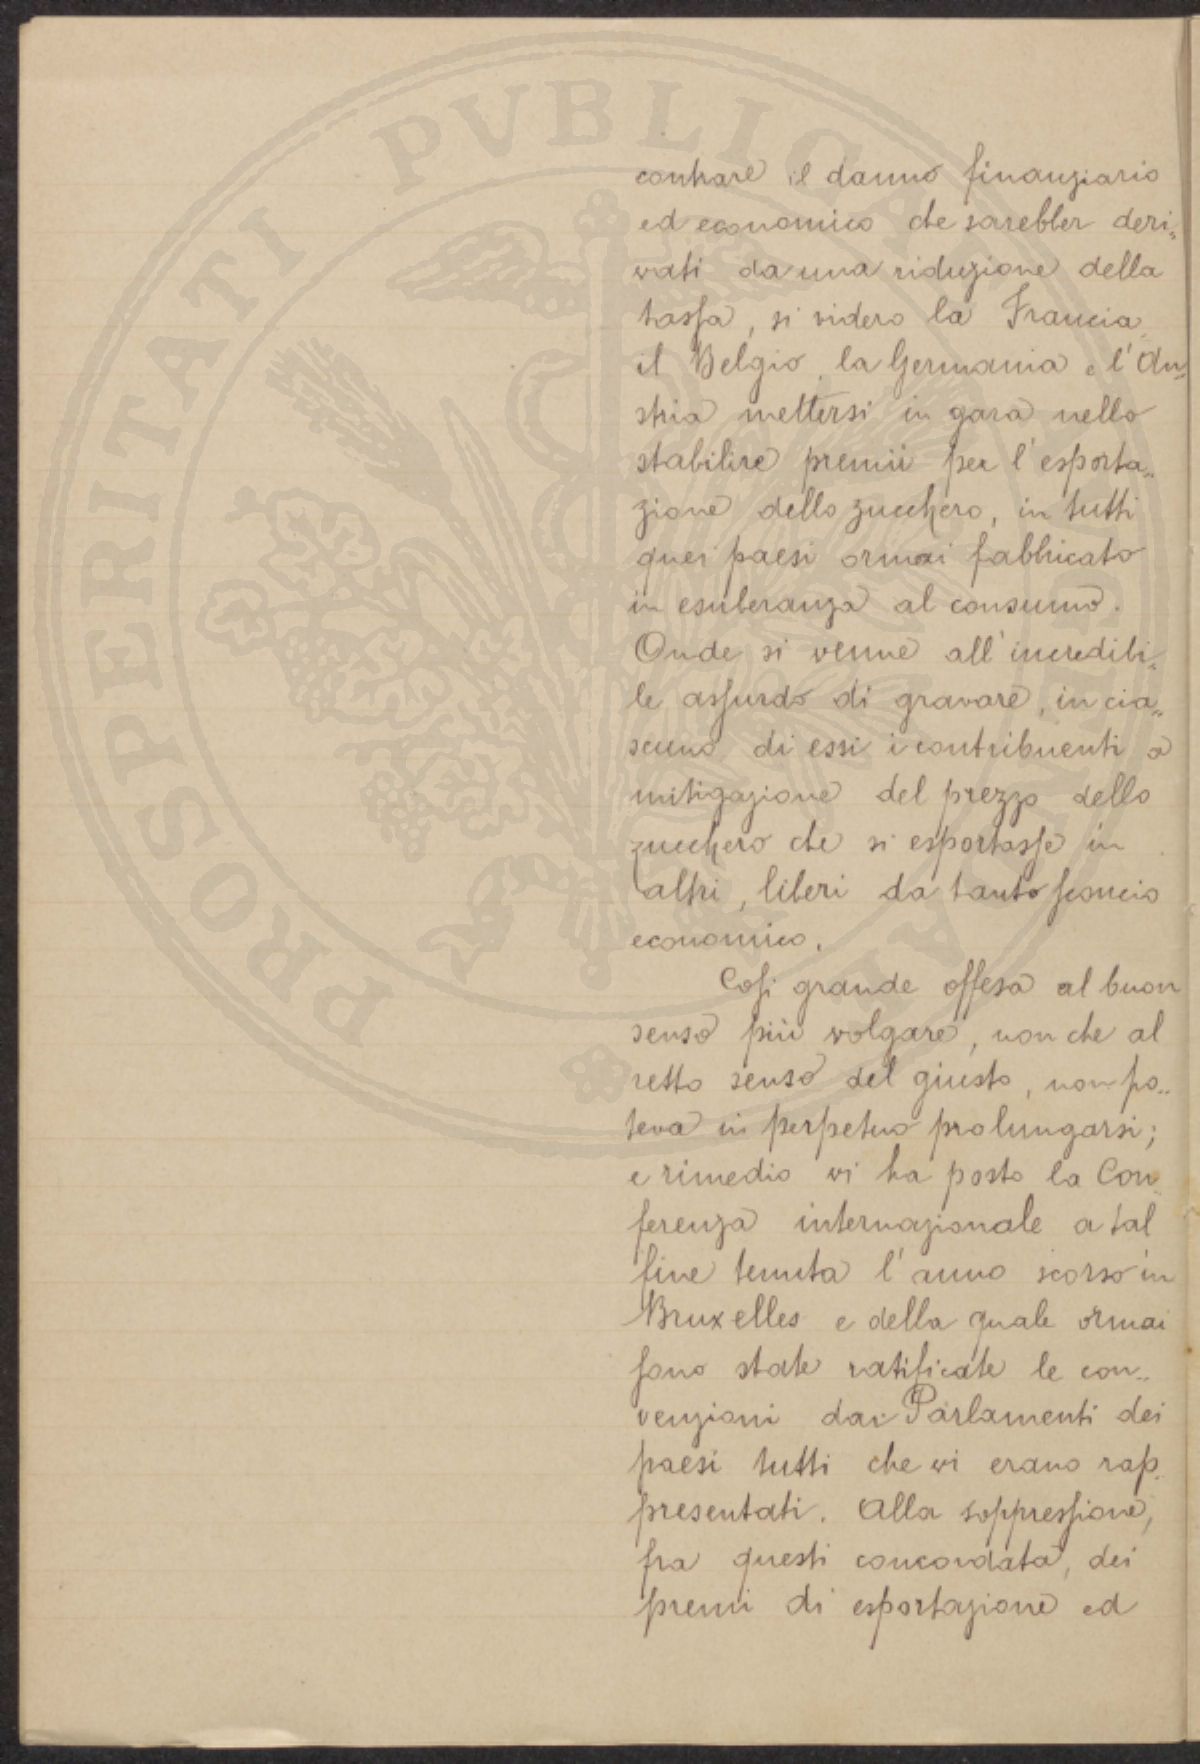 PROSPERITATI PVBLICAE AVGENDAE
contrare il danno finanziario
ed economico che sarebber deri„
vati da una riduzione della
tassa, si videro la Francia,
il Belgio, la Germania e l'Au„
stria mettersi in gara nello
stabilire premii per l'esporta„
zione dello zucchero, in tutti
quei paesi ormai fabbricato
in esuberanza al consumo.
Onde si venne all'incredibi„
le assurdo di gravare, in cia„
scuno di essi i contribuenti a
mitigazione del prezzo dello
zucchero che si esportasse in
altri, liberi da tanto sconcio
economico.
Così grande offesa al buon
senso più volgare, non che al
retto senso del giusto, non po„
teva in perpetuo prolungarsi;
e rimedio vi ha posto la Con„
ferenza internazionale a tal
fine tenuta l'anno scorso in
Bruxelles e della quale ormai
sono state ratificate le con„
venzioni dai Parlamenti dei
paesi tutti che vi erano rap„
presentati. Alla soppressione,
fra questi concordata, dei
premi di esportazione ed